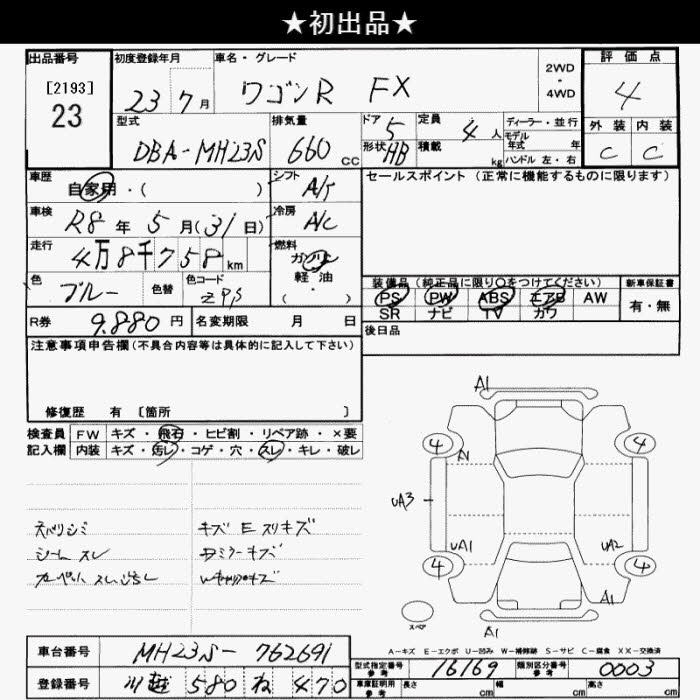 ★初出品★
出品番号
[2193]
23
初度登録年月
23 7月
車名・グレード
ワゴンR FX
2WD
・
4WD
評価点
4
外装 内装
C C
型式
DBA-MH23S
排気量
660 CC
ドア 5
形状 HB
定員 4 人
積載 kg
ディーラー・並行
モデル
年式 年
ハンドル 左・右
車歴
自家用・( )
シフト
A/T
車検
R8 年 5 月(31日)
冷房
A/C
走行
4万8千758 km
燃料
ガソリン
軽油
(・)
色
ブルー
色替
色コード
ZPS
R券 9.880 円
名変期限 月 日
セールスポイント (正常に機能するものに限ります)
装備品(純正品に限り○をつけてください)
PS PW ABS エアB AW
SR ナビ TV カワ
新車保証書
有・無
後日品
注意事項申告欄(不具合内容等は具体的に記入して下さい)
修復歴 有 [箇所 ]
検査員
記入欄
FW キズ・飛石・ヒビ割・リペア跡・×要
内装 キズ・汚レ・コゲ・穴・スレ・キレ・破レ
シーム スレ
キズ E スリキズ
ミラーキズ
A1
4
4
A1
UA3
UA1
UA2
4
4
A1
スペア
A1
A-キズ E-エクボ U-凹み W-補修跡 S-サビ C-腐食 XX-交換済
車台番号
MH23S-762691
登録番号
川越 580 ね 470
型式指定番号
参考
16169
類別区分番号
参考
0003
車庫証明用
参考
長さ cm
幅 cm
高さ cm